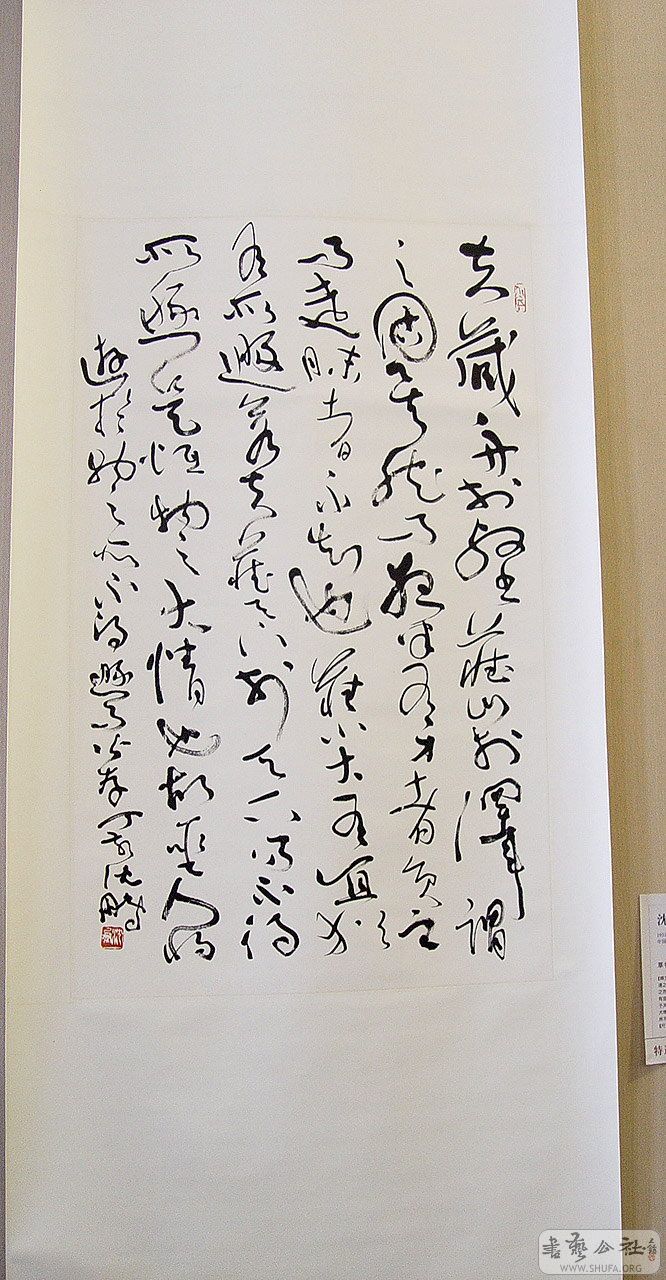 夫藏舟於壑藏山於澤謂
之固矣然而夜半有力者負之
而走昧者不知也藏小大有宜猶
有所遯若夫藏天下於天下而不得
所遯是恆物之大情也故聖人將
遊於物之所不得遯而皆存丁亥沈鵬
沈
特
書藝公社
WWW.SHUFA.ORG